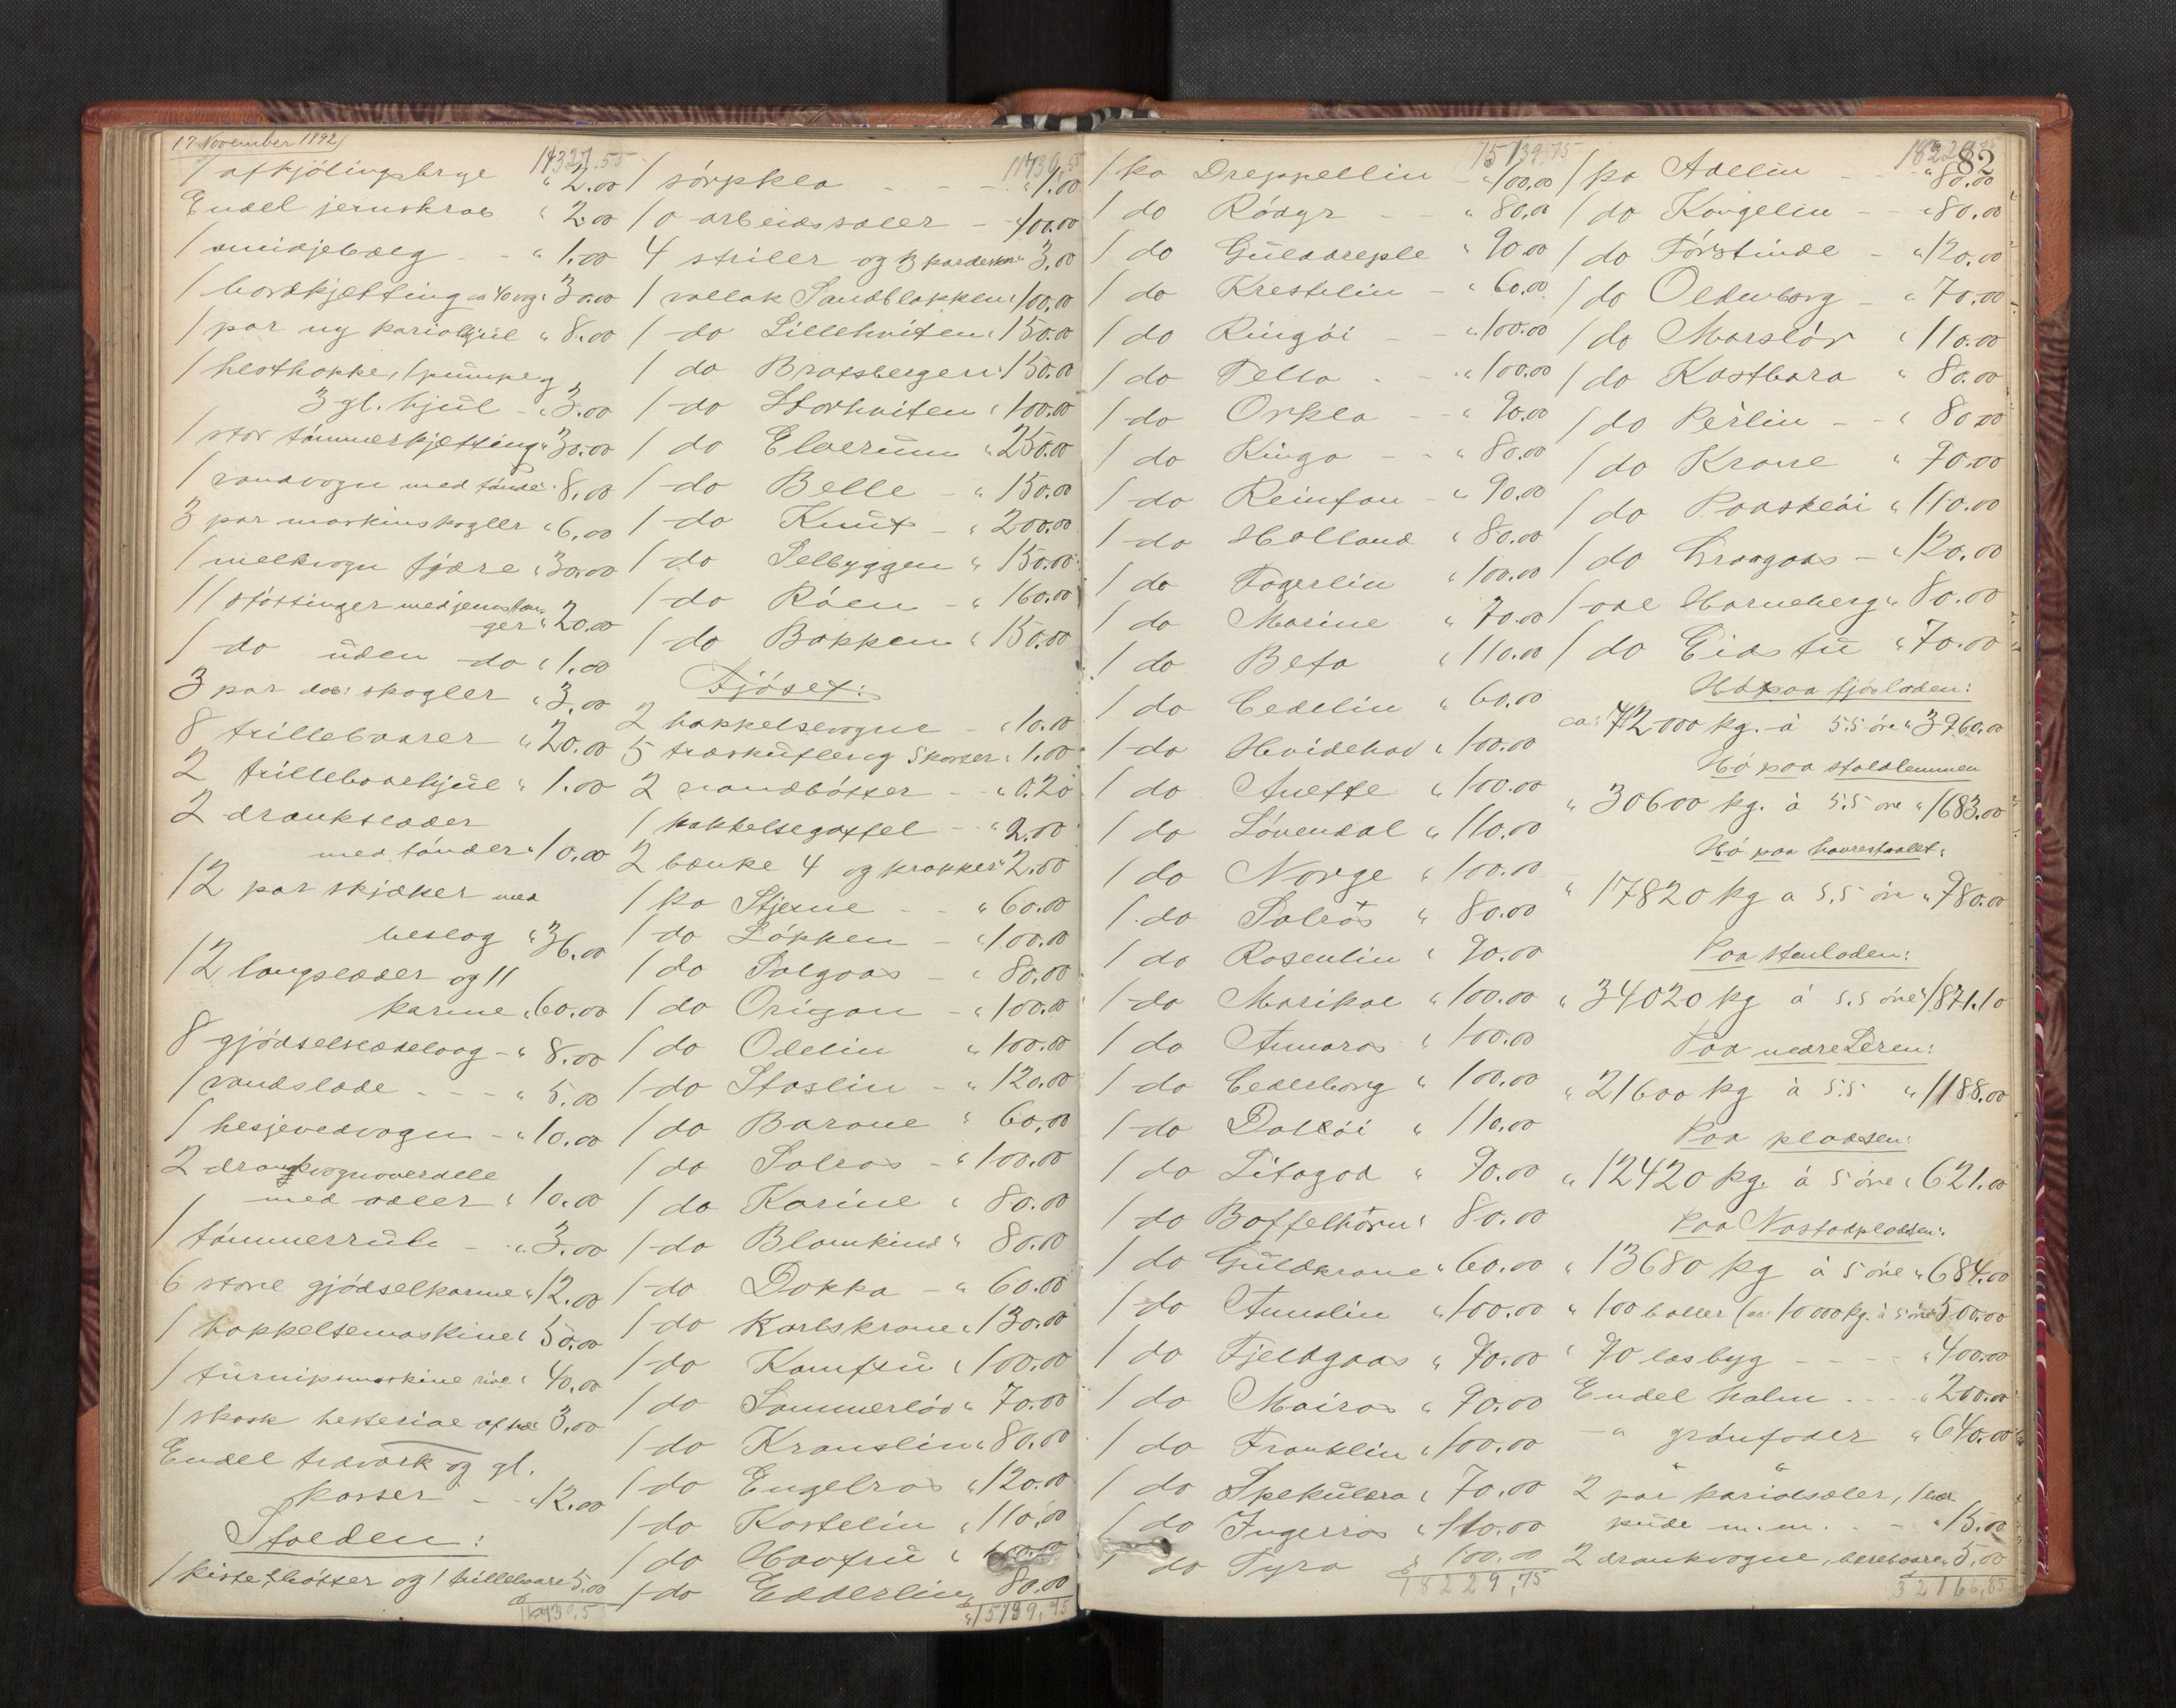 17 November 1892
14327.55
1 afkjölingsbrye " 2.00
Endel jernskrab " 2.00
1 smidjebælg - - " 1.00
1 bordkjetting ca 40 vog " 30.00
1 par ny kariolhjul " 8.00
1 hesthakke, 1 pumpe og
3 gl. hjul - " 3.00
1 stor tømmerkjetting " 30.00
1 vandvogn med tønde " 8.00
3 par maskinskagler " 6.00
1 melkvogn fjære " 30.00
11 støttinger med jernstan-
ger " 20.00
1 do uden do " 1.00
3 par do: skagler " 3.00
8 trillebaarer " 20.00
2 trillebaarhjul " 1.00
2 drankslæder
med tønder " 10.00
12 par skjæker med
beslag " 36.00
12 langslæder og 11
karme " 60.00
8 gjødselslædelaag - " 8.00
1 vandslæde - - - " 5.00
1 hesjevedvogn - " 10.00
2 drankvognoverdele
med adler " 10.00
1 tømmerrule - " 3.00
6 store gjødselkarme " 12.00
1 hakkelsemaskine " 50.00
1 turnipsmaskine rive " 40.00
1 skask hesterive af træ " 3.00
Endel træværk og gl.
kasser - - " 12.00
Stalden:
1 kiste, bøtter og 1 trillebaare 5.00
1 sörpkla - - - " 1.00
10 arbeidssæler - " 100.00
4 striler og 3 kardesker " 3.00
1 vallak Sandblakken " 100.00
1 do Lillehviten " 150.00
1 do Bratsbergen " 150.00
1 do Storhviten " 100.00
1 do Elverum " 250.00
1 do Belle - " 150.00
1 do Knut - " 200.00
1 do Selbyggen " 150.00
1 do Röen - " 160.00
1 do Bakken " 150.00
Fjöset:
2 hakkelsevogne - " 10.00
5 træskufler og 5 koster " 1.00
2 vandbøtter - " 0.20
1 hakkelsegaffel - " 2.00
2 bænke 4 og krakker " 2.00
1 ko Stjerne - - " 60.00
1 do Løkken - " 100.00
1 do Salgaas - " 80.00
1 do Origan - " 100.00
1 do Odelin " 100.00
1 do Staslin - " 120.00
1 do Barone " 60.00
1 do Solros - " 100.00
1 do Karine " 80.00
1 do Blomkind " 80.00
1 do Dokka - " 60.00
1 do Karlskrone " 130.00
1 do Komfru " 100.00
1 do Sommerløv " 70.00
1 do Kranslin " 80.00
1 do Engelros " 120.00
1 do Kostelin " 110.00
1 do Havfru "
1 do Edderlin " 80.00
15139,75
15139,75
1 ko Dreppellin - " 100.00
1 do Rödyr - - " 80.00
1 do Gulddreple " 90.00
1 do Krestelin - " 60.00
1 do Ringöi - " 100.00
1 do Tella - " 100.00
1 do Orkla - - " 90.00
1 do Kinga - - " 80.00
1 do Reinfan - " 90.00
1 do Holland " 80.00
1 do Fagerlin " 100.00
1 do Marine " 70.00
1 do Beta " 110.00
1 do Cedelin " 60.00
1 do Hvidehov " 100.00
1 do Anette " 100.00
1 do Lövendal " 110.00
1 do Norge " 100.00
1 do Solros " 80.00
1 do Rosenlin " 90.00
1 do Marikae " 100.00
1 do Annaros " 100.00
1 do Cedersborg " 100.00
1 do Dalöi " 110.00
1 do Litagod " 90.00
1 do Boffelhörn " 80.00
1 do Guldkrone " 60.00
1 do Annolin " 100.00
1 do Fjeldgaas " 70.00
1 do Mairos " 90.00
1 do Franklin " 100.00
1 do Spekulera " 70.00
1 do Ingerros " 110.00
1 do Tyra " 100.00
18229,75
82
1 ko Adelin - - " 80.00
1 do Kongelin - - " 80.00
1 do Förstinde - " 120.00
1 do Oldenborg - " 70.00
1 do Morslör " 110.00
1 do Kostbara " 80.00
1 do Perlin - - " 80.00
1 do Krone " 70.00
1 do Paasköi " 110.00
1 do Graagaas - " 120.00
1 oxe Horneberg " 80.00
1 do Eidstu " 70.00
Hö paa fjösladen:
ca: 72000 kg. à 5.5 öre " 3960.00
Hö paa staldlemmen
" 30600 kg. à 5.5 öre " 1683.00
Hö paa havrestaalet:
" 17820 kg à 5.5 öre " 980.00
Paa stenladen:
" 34020 kg à 5.5 öre " 1871.10
Paa nedre Leren:
" 21600 kg à 5.5 " 1188.00
Paa pladsen:
" 12420 kg. à 5 öre " 621.00
Paa Nastadpladsen:
" 13680 kg à 5 öre " 684.00
" 100 baller (ca: 10000 kg. à 5 öre " 500.00
" 70 læs byg - - - " 400.00
Endel halm - - - " 200.00
- " grönfoder " 640.00
2 par kariolsæler, 1 læder
pude m.m. - - " 15.00
2 drankvogne, bærebaare " 5.00
32166,85